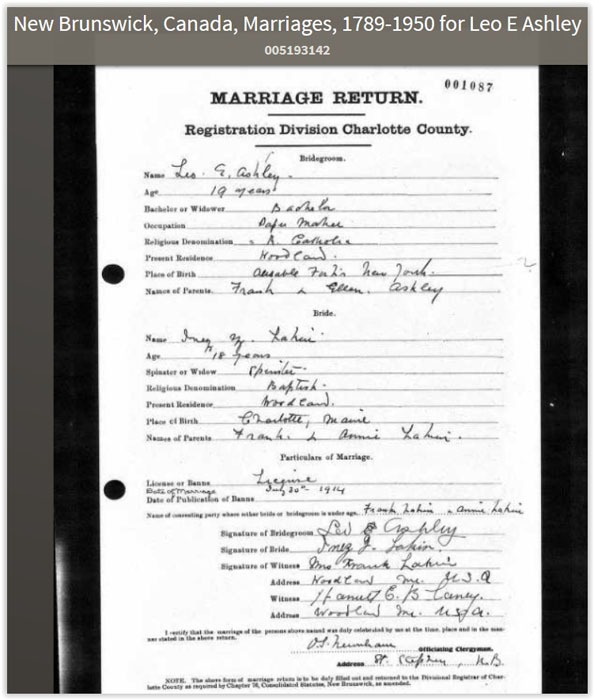 New Brunswick, Canada, Marriages, 1789-1950 for Leo E Ashley
005193142
001087
MARRIAGE RETURN.
Registration Division Charlotte County.
Bridegroom.
Name Leo. E. Ashley.
Age 19 years
Bachelor or Widower Bachelor
Occupation Paper Maker
Religious Denomination R. Catholic
Present Residence Woodland.
Place of Birth Ausable Forks New York.
Names of Parents. Frank & Ellen. Ashley
Bride.
Name Inez Lakin
Age 18 years
Spinster or Widow Spinster
Religious Denomination Baptist.
Present Residence Woodland.
Place of Birth Charlotte, Maine
Names of Parents Frank & Annie Lakin.
Particulars of Marriage.
License or Banns License
Date of Marriage July 20th 1914
Date of Publication of Banns
Name of consenting party where either bride or bridegroom is under age. Frank Lakin & Annie Lakin
Signature of Bridegroom Leo E Ashley
Signature of Bride Inez Lakin.
Signature of Witness Mrs Frank Lakin
Address Woodland Me. U.S.A
Witness E. B Laney.
Address Woodland Me. USA.
I certify that the marriage of the persons above named was duly celebrated by me at the time, place and in the man-
ner stated in the above return.
Newnham Officiating Clergyman.
Address St. Stephen, N.B
NOTE. The above form of marriage return is to be duly filled out and returned to the Divisional Registrar of Char-
lotte County as required by Chapter 76, Consolidated Statutes, New Brunswick, as amended.